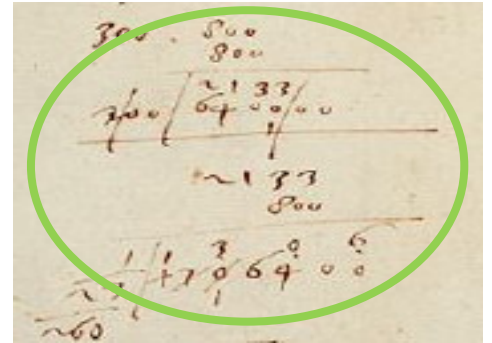 300 . 800
800
2133
300 | 6400/00
2133
800
3 0 6
1 | 1706400
260